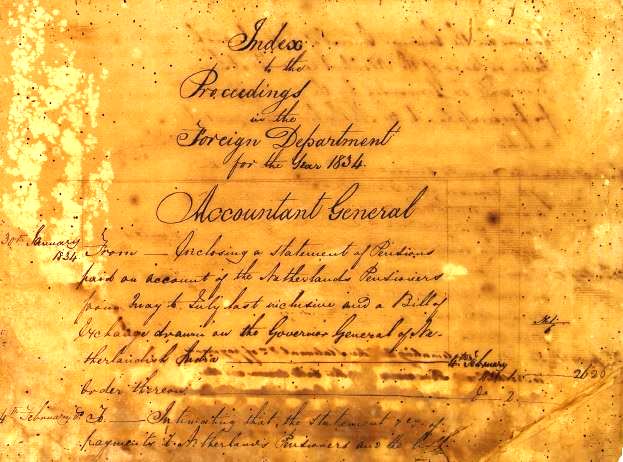 Index
to the
Proceedings
in the
Foreign Department
for the Year 1834.
Accountant General
30th January
1834
From — Inclosing a Statement of Pensions
paid on account of the Netherlands Pensioners
from May to July last inclusive and a Bill of
Exchange drawn on the Governor General of Ne-
therlandish India
February
Order thereon
2
4th February
To — Intimating that, the Statement
payments to Netherlands Pensioners and the